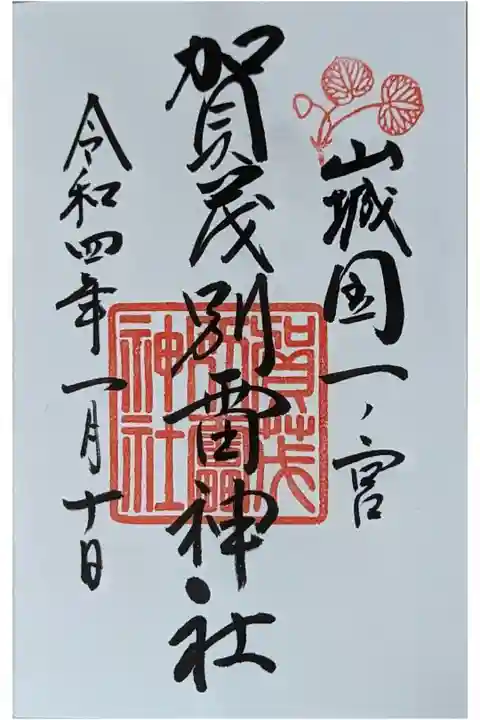 山城国一ノ宮
賀茂別雷神社
賀茂別雷神社
令和四年一月十日